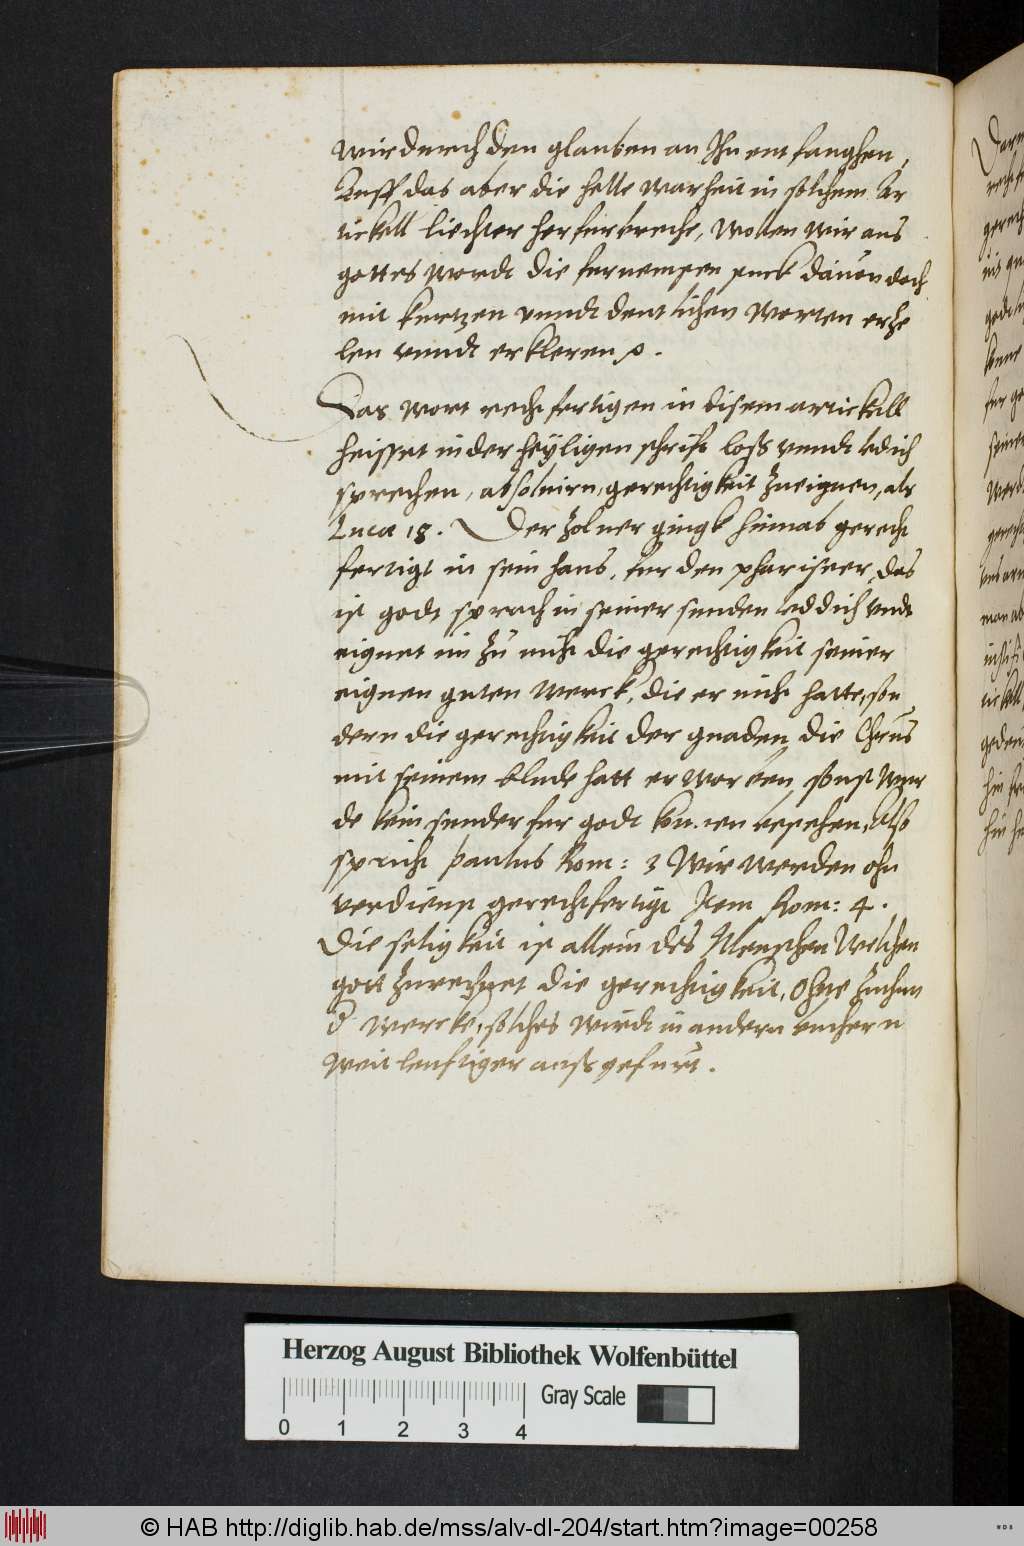 wir durch den glauben an Ihn entfanghen,
Auff das aber die helle warheit in solchem Ar
tickell liechter herfur breche, wollen wir aus
gottes wordt die furnempsen puck dauon doch
mit kurtzen vnndt deutlichen worten erhe
len vnndt erkleren.
Das wort rechtfertigen in disem artickell
heisset in der heyligen schrifft loss vnndt ledich
sprechen, absoluirn, gerechtigkeit zueignen, als
Lucæ 18. Der zolner gingk hinnab gerecht
fertigt in sein haus, fur den phariseer, das
ist godt sprach in seiner sunden leddich vndt
eignet im zu nicht die gerechtigkeit seiner
eignen guten werck, die er nicht hatte, son
dern die gerechtigkeit der gnaden, die Christus
mit seinem blude hatt erworben, sonst wur
de kein sunder fur godt konnen bestehen, Also
spricht Paulus Rom: 3 Wir werden ohn
verdienst gerechtfertigt Item Rom: 4.
Die seligkeit ist allein des Menschen welchen
gott zurechnet die gerechtigkeit, Ohne zuthun
d wercke, solches wirdt in andern buchern
weitleuftiger auss gefurt.
Herzog August Bibliothek Wolfenbüttel
0 1 2 3 4
Gray Scale
© HAB http://diglib.hab.de/mss/alv-dl-204/start.htm?image=00258